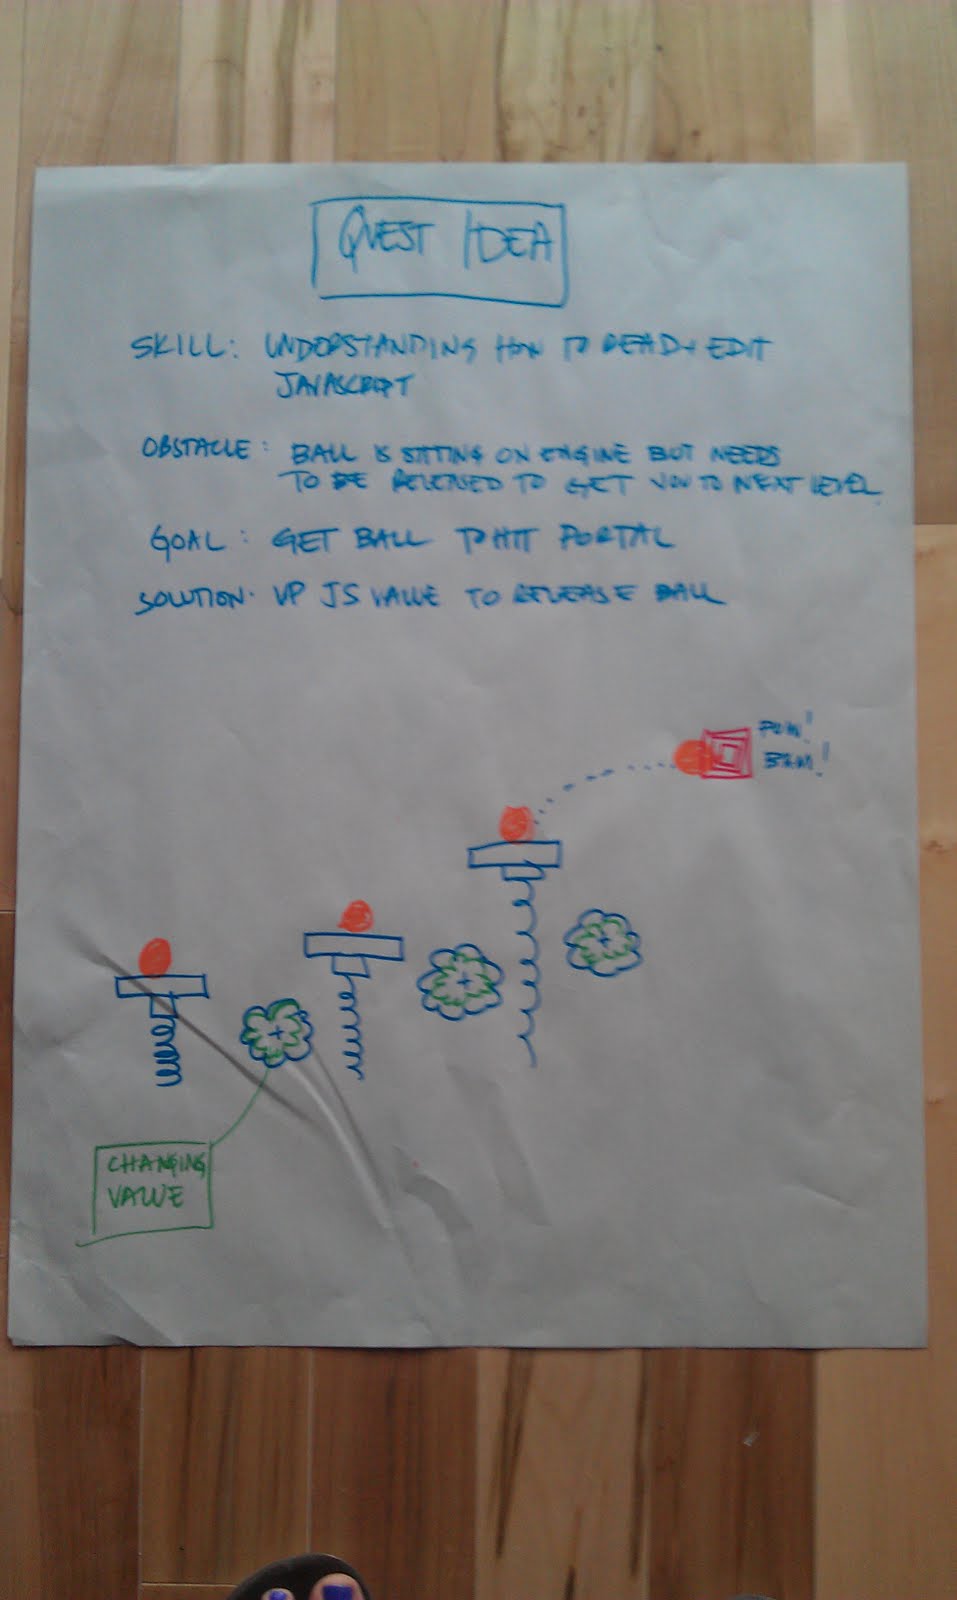 QUEST IDEA
SKILL: UNDERSTANDING HOW TO READ + EDIT
JAVASCRIPT
OBSTACLE: BALL IS SITTING ON ENGINE BUT NEEDS
TO BE RELEASED TO GET YOU TO NEXT LEVEL.
GOAL: GET BALL TO HIT PORTAL
SOLUTION: UP JS VALUE TO RELEASE BALL
POW!
BAM!
CHANGING
VALUE